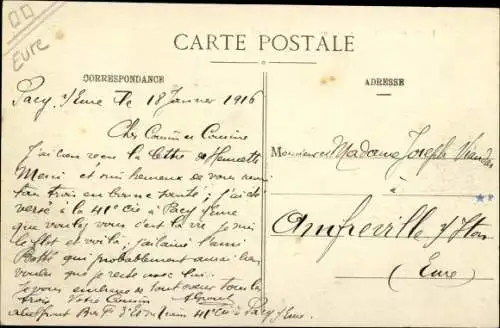 Eure
CARTE POSTALE
CORRESPONDANCE
ADRESSE
Pacy s/Eure le 18 Janvier 1916
Cher Cousin et Cousine
J'ai bien reçu la lettre de Henriette
Merci et suis heureux de vous savoir
tous trois en bonne santé; j'ai été
versé à la 41e Cie à Pacy s/Eure
que voulez vous c'est la vie je suis
le flot et voilà; j'ai laissé l'ami
qui probablement aurait bien
voulu que je reste avec lui.
Je vous embrasse de tout cœur tous les
trois. Votre Cousin
41e Cie à Pacy s/Eure.
Monsieur et Madame Joseph
à
Amfreville s/Iton
(Eure)